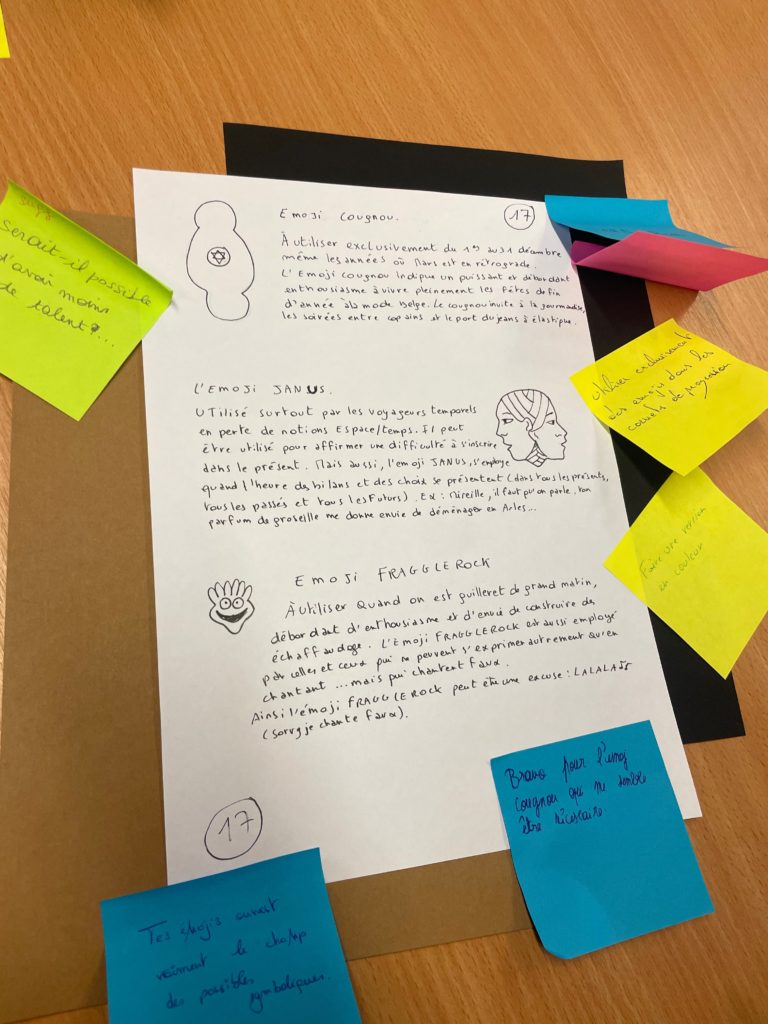 Emoji Cougnou.
17
À utiliser exclusivement du 1er au 31 décembre
même les années où Mars est en rétrograde.
L'Emoji cougnou indique un puissant et débordant
enthousiasme à vivre pleinement les fêtes de fin
d'année à la mode Belge. Le cougnou invite à la gourmandise,
les soirées entre copains et le port du jeans à élastique.
L'EMOJI JANUS.
UTilisé surtout par les voyageurs temporels
en perte de notions Espace/temps. Il peut
être utilisé pour affirmer une difficulté à s'inscrire
dans le présent. Mais aussi, l'emoji JANUS, s'employe
quand l'heure des bilans et des choix se présentent (dans tous les présents,
tous les passés et tous les Futurs). Ex : Mireille, il faut qu'on parle, ton
parfum de groseille me donne envie de déménager en Arles...
Emoji FRAGGLEROCK
À utiliser Quand on est guilleret de grand matin,
débordant d'enthousiasme et d'envie de construire des
échaffaudage. L'Emoji FRAGGLEROCK est aussi employé
par celles et ceux qui ne peuvent s'exprimer autrement qu'en
chantant ... mais qui chantent faux.
Ainsi l'émoji FRAGGLEROCK peut être une excuse : LALALA
(sorry je chante faux).
17
Serait-il possible
d'avoir moins
de talent?...
Utiliser exclusivement
tes emojis dans les
conseils de
Faire une version
en couleur
Bravo pour l'emoj
cougnou qui me semble
être nécessaire
Tes émojis ouvrent
vraiment le champ
des possibles
symboliques.